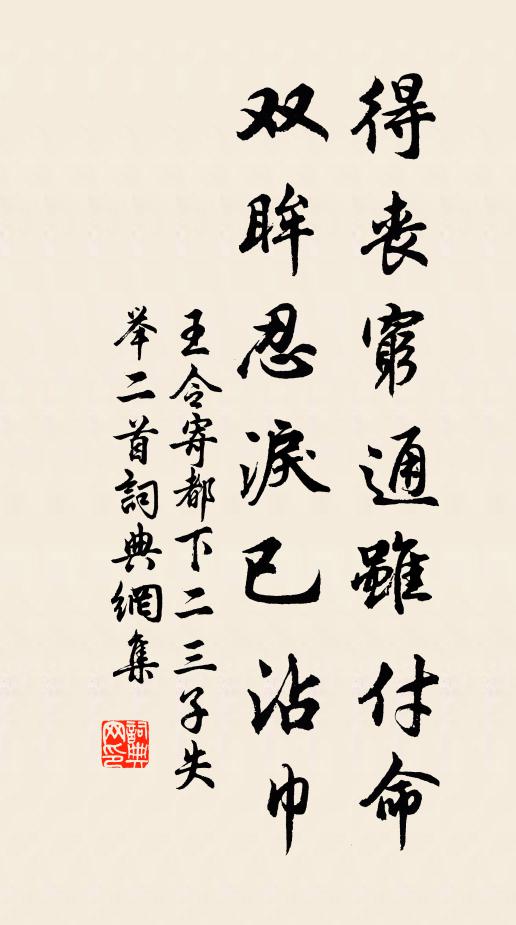 得丧窮通雖付命
双眸忍淚已沾巾
王令寄都下二三子失
举二首詞典網集
詞典网印